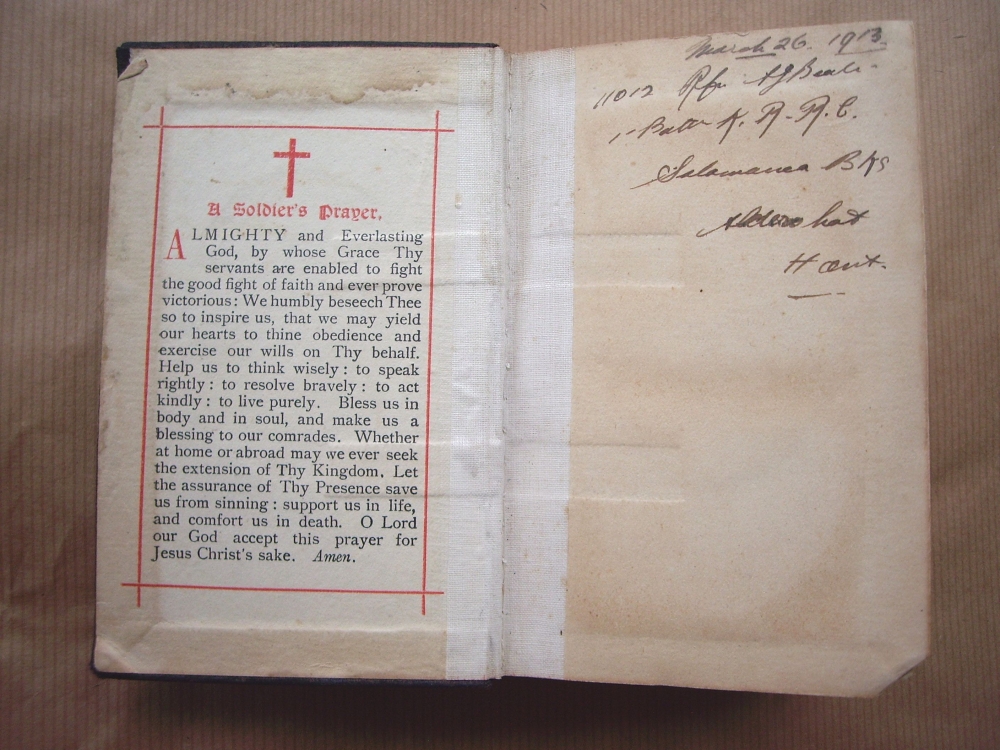 A Soldier's Prayer.
ALMIGHTY and Everlasting
God, by whose Grace Thy
servants are enabled to fight
the good fight of faith and ever prove
victorious: We humbly beseech Thee
so to inspire us, that we may yield
our hearts to thine obedience and
exercise our wills on Thy behalf.
Help us to think wisely: to speak
rightly: to resolve bravely: to act
kindly: to live purely. Bless us in
body and in soul, and make us a
blessing to our comrades. Whether
at home or abroad may we ever seek
the extension of Thy Kingdom. Let
the assurance of Thy Presence save
us from sinning: support us in life,
and comfort us in death. O Lord
our God accept this prayer for
Jesus Christ's sake. Amen.
March 26. 1913.
11012 Rfn AJ
1st Batt K. R. R. C.
Salamanca Bks
Aldershot
Hant.